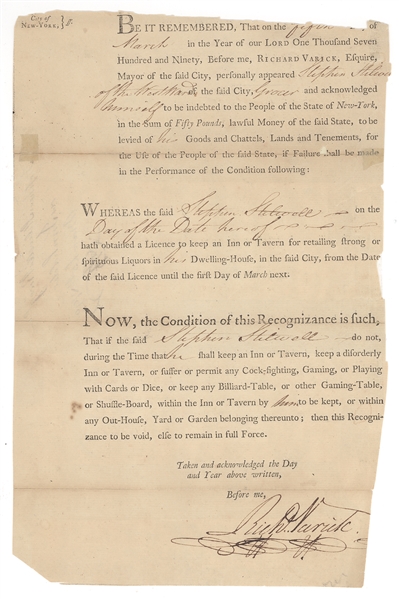 City of
New-York, } ſſ.
BE IT REMEMBERED, That on the fifteenth Day of
March in the Year of our LORD One Thousand Seven
Hundred and Ninety, Before me, RICHARD VARICK, Esquire,
Mayor of the said City, personally appeared Stephen Stilwell
of the said City, Grocer and acknowledged
himself to be indebted to the People of the State of New-York,
in the Sum of Fifty Pounds, lawful Money of the said State, to be
levied of his Goods and Chattels, Lands and Tenements, for
the Use of the People of the said State, if Failure shall be made
in the Performance of the Condition following:
WHEREAS the said Stephen Stilwell on the
Day of the Date hereof
hath obtained a Licence to keep an Inn or Tavern for retailing strong or
spirituous Liquors in his Dwelling-House, in the said City, from the Date
of the said Licence until the first Day of March next.
NOW, the Condition of this Recognizance is such,
That if the said Stephen Stilwell do not,
during the Time that he shall keep an Inn or Tavern, keep a disorderly
Inn or Tavern, or suffer or permit any Cock-fighting, Gaming, or Playing
with Cards or Dice, or keep any Billiard-Table, or other Gaming-Table,
or Shuffle-Board, within the Inn or Tavern by him to be kept, or within
any Out-House, Yard or Garden belonging thereunto; then this Recogni-
zance to be void, else to remain in full Force.
Taken and acknowledged the Day
and Year above written,
Before me,
Richd. Varick